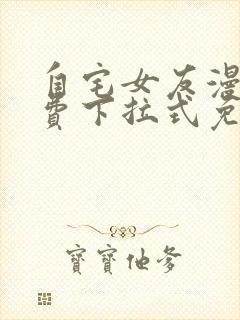 自宅女友漫
费下拉式免
寶寶他爹